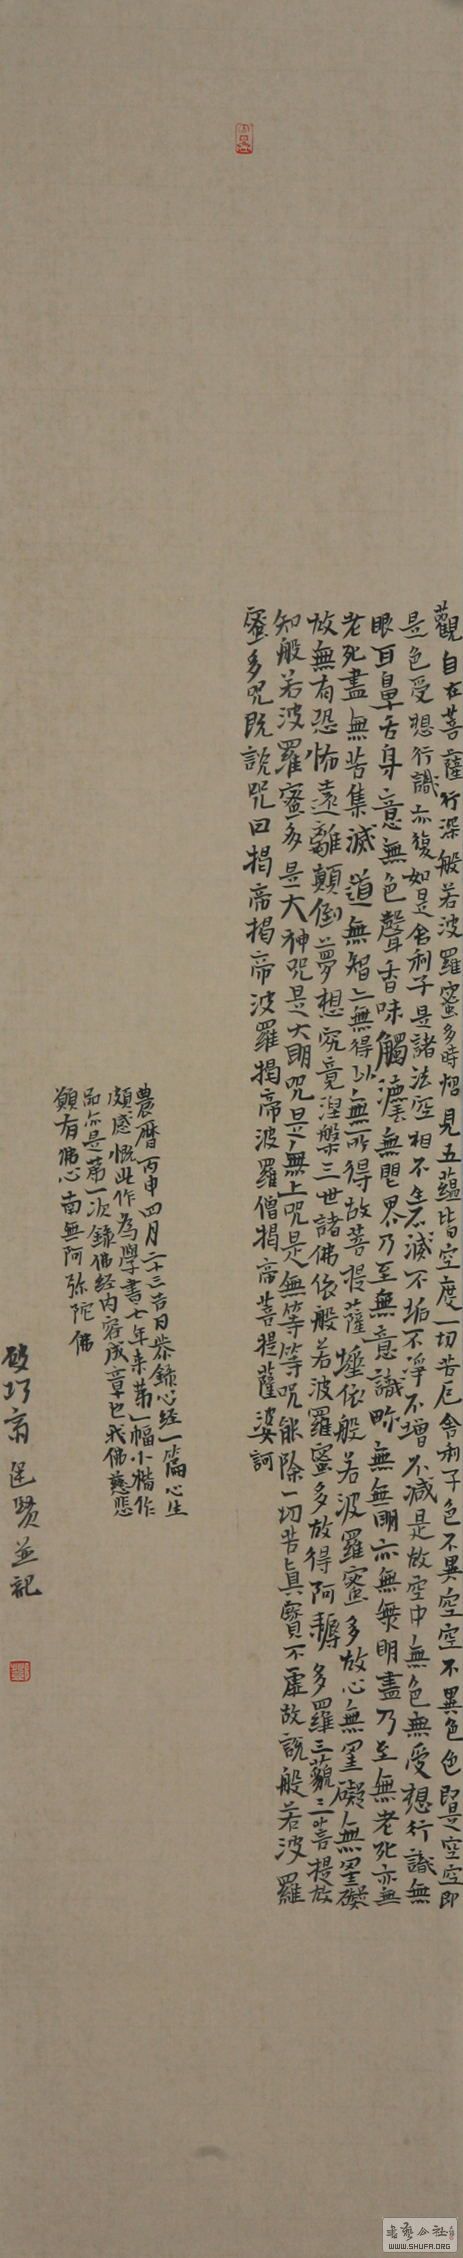 觀自在菩薩行深般若波羅蜜多時照見五蘊皆空度一切苦厄舍利子色不異空空不異色色即是空空即
是色受想行識亦復如是舍利子是諸法空相不生不滅不垢不淨不增不減是故空中無色無受想行識無
眼耳鼻舌身意無色聲香味觸法無眼界乃至無意識界無無明亦無無明盡乃至無老死亦無
老死盡無苦集滅道無智亦無得以無所得故菩提薩埵依般若波羅蜜多故心無罣礙無罣礙
故無有恐怖遠離顛倒夢想究竟涅槃三世諸佛依般若波羅蜜多故得阿耨多羅三藐三菩提故
知般若波羅蜜多是大神咒是大明咒是無上咒是無等等咒能除一切苦真實不虛故說般若波羅
蜜多咒既說咒曰揭帝揭帝波羅揭帝波羅僧揭帝菩提薩婆訶
農曆丙申四月二十三吉日恭錄心经一篇心生
頗感慨此作為學書七年来第一幅小楷作
品亦是第一次錄佛经内容成章也我佛慈悲
願有佛心南無阿弥陀佛
賢並記
书艺公社
WWW.SHUFA.ORG